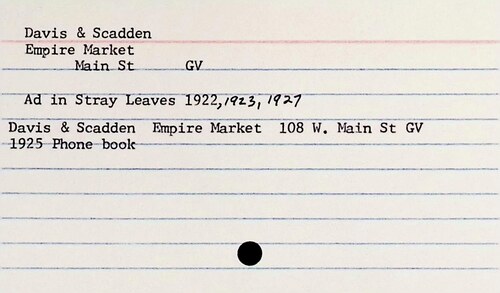 Davis & Scadden
Empire Market
Main St GV
Ad in Stray Leaves 1922, 1923, 1927
Davis & Scadden Empire Market 108 W. Main St GV
1925 Phone book